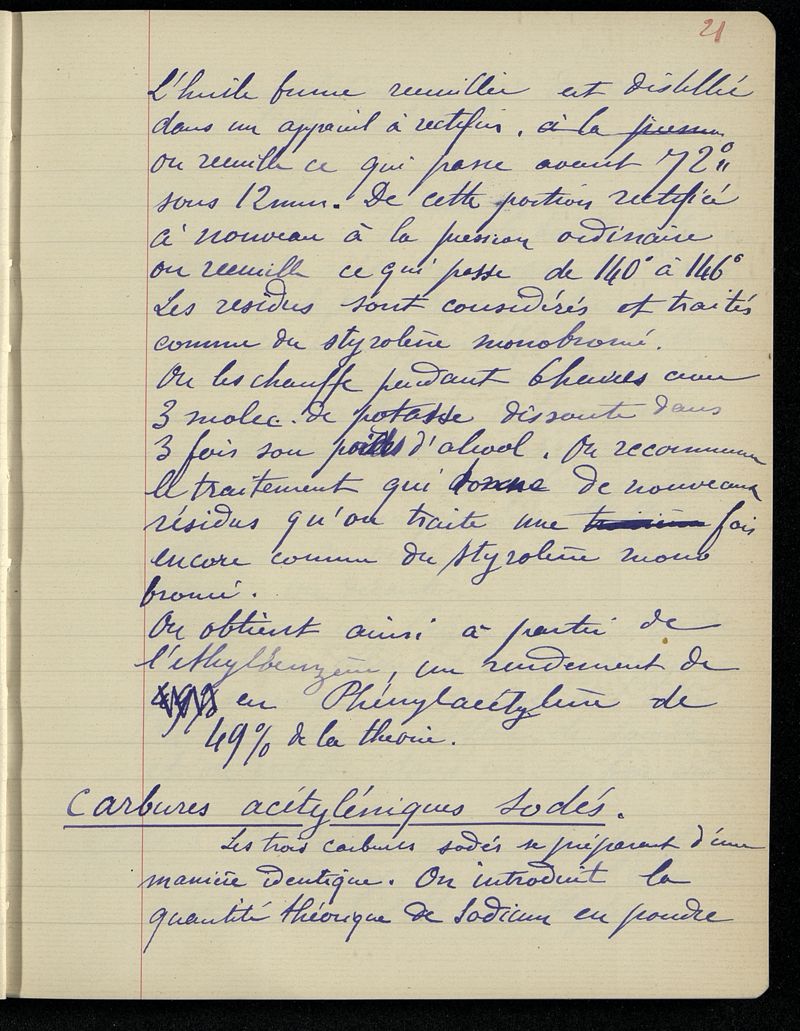 21
L'huile brune recueillie est distillée
dans un appareil à rectifier. à la pression
on recueille ce qui passe avant 72°
sous 12mm. De cette portion rectifiée
à nouveau à la pression ordinaire
on recueille ce qui passe de 140° à 146°
Les residus sont considérés et traités
comme du styrolène monobromé.
On les chauffe pendant 6 heures avec
3 molec. de potasse dissoute dans
3 fois son poids d'alcool. On recommence
le traitement qui donne de nouveaux
résidus qu'on traite une troisième fois
encore comme du styrolène mono
bromé.
On obtient ainsi à partir de
l'éthylbenzène, un rendement de
en Phénylacétylène de
49% de la theorie.
Carbures acétyléniques sodés.
Les trois carbures sodés se préparent d'une
manière identique. On introduit la
quantité théorique de Sodium en poudre